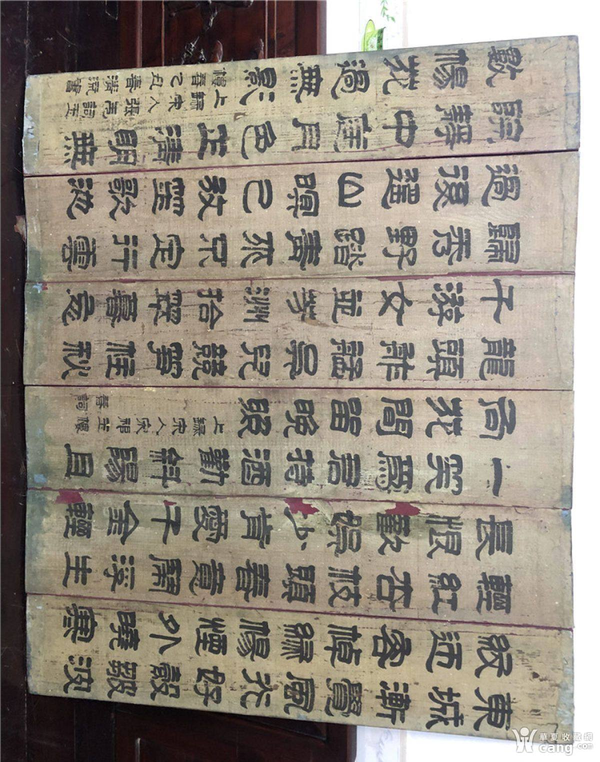 東城漸覺風光好縠皺波
紋迎客棹綠楊煙外曉寒
輕紅杏枝頭春意鬧浮生
長恨歡娛少肯愛千金輕
一笑為君持酒勸斜陽且
向花間留晚照
上錄宋人宋祁玉樓
春詞
龍頭舴艋吳兒競筍柱秋
千游女並芳洲拾翠暮忘
歸秀野踏青來不定行雲
過後遙山暝已放笙歌池
院靜中庭月色正清明無
數楊花過無影
上錄宋人張先詞玉
樓春己丑春書
華夏收藏網
cang.com